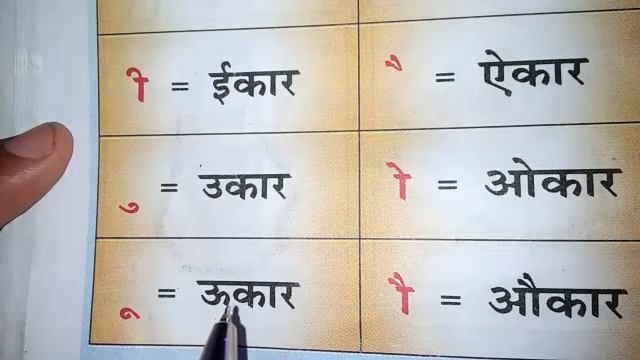 ी = ईकार
ै = ऐकार
ु = उकार
ो = ओकार
ू = ऊकार
ौ = औकार